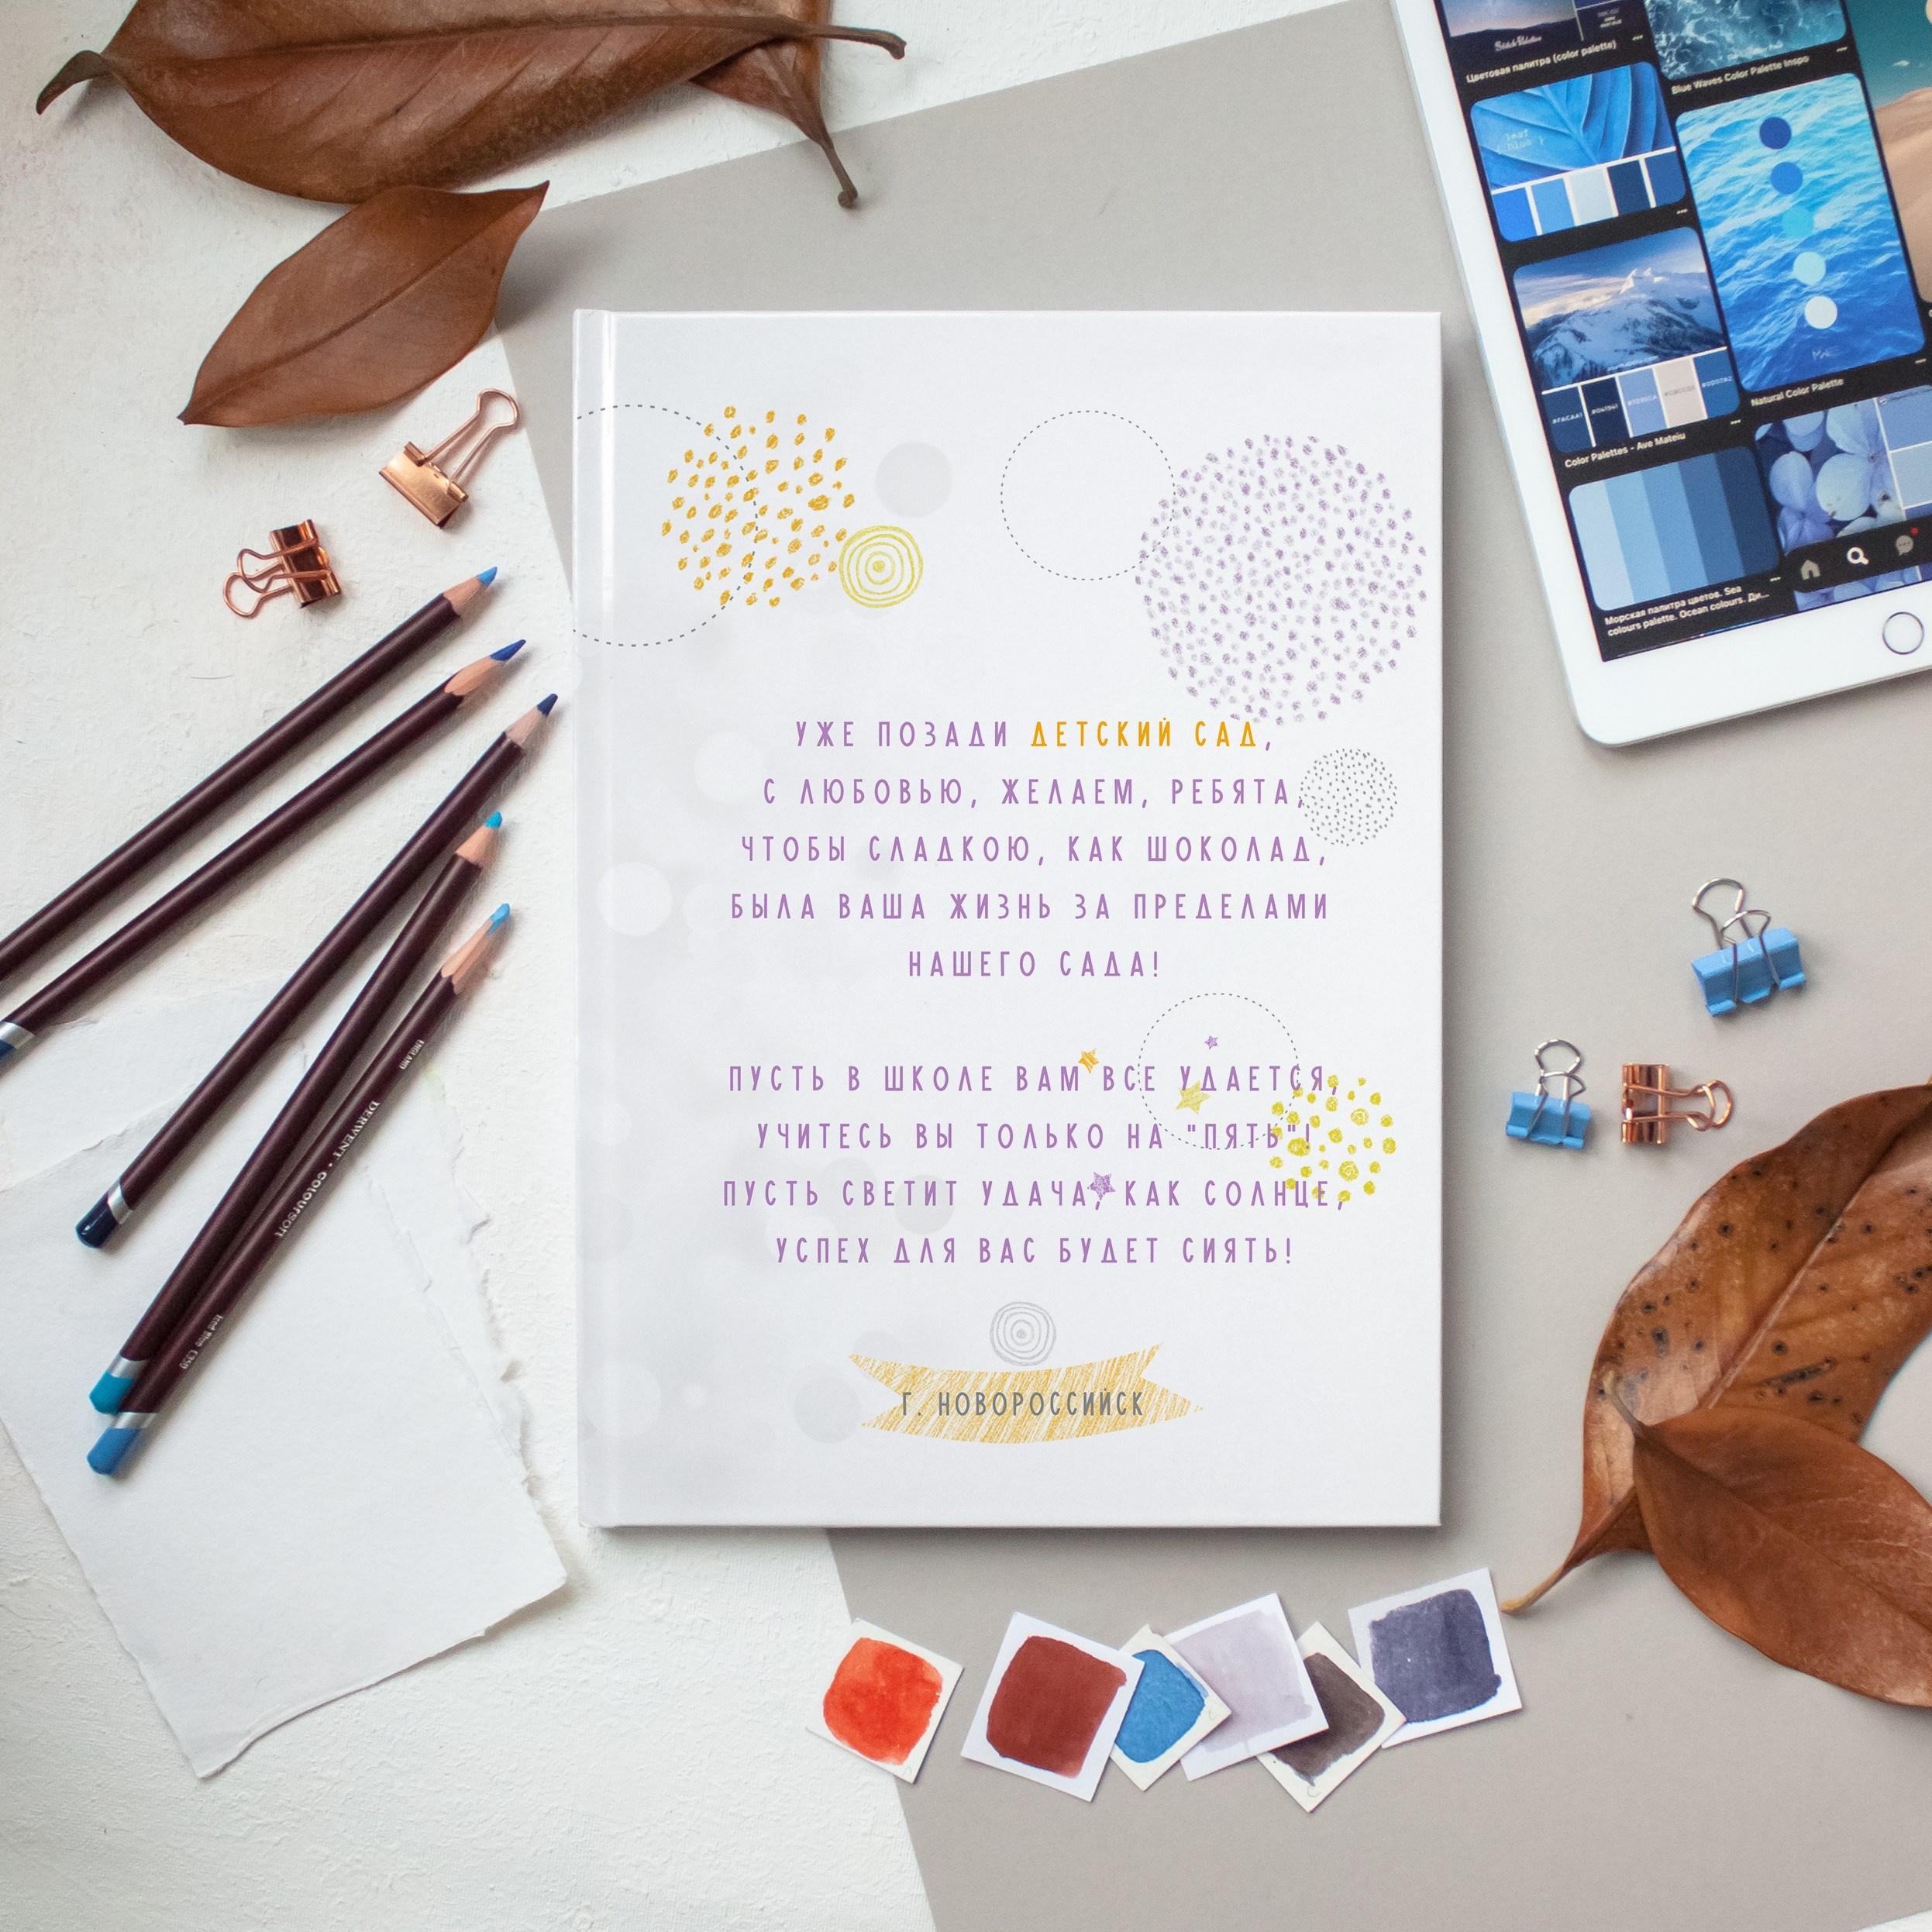 Stitch Palettes
Цветовая палитра (color palette)
Blue Waves Color Palette Inspo
Natural Color Palette
Color Palettes - Ave Mateiu
Морская палитра цветов. Sea
colours palette. Ocean colours. Ди...
УЖЕ ПОЗАДИ ДЕТСКИЙ САД,
С ЛЮБОВЬЮ, ЖЕЛАЕМ, РЕБЯТА,
ЧТОБЫ СЛАДКОЮ, КАК ШОКОЛАД,
БЫЛА ВАША ЖИЗНЬ ЗА ПРЕДЕЛАМИ
НАШЕГО САДА!
ПУСТЬ В ШКОЛЕ ВАМ ВСЕ УДАЕТСЯ,
УЧИТЕСЬ ВЫ ТОЛЬКО НА "ПЯТЬ"!
ПУСТЬ СВЕТИТ УДАЧА, КАК СОЛНЦЕ,
УСПЕХ ДЛЯ ВАС БУДЕТ СИЯТЬ!
Г. НОВОРОССИЙСК
ENGLAND
DERWENT · COLOURSOFT